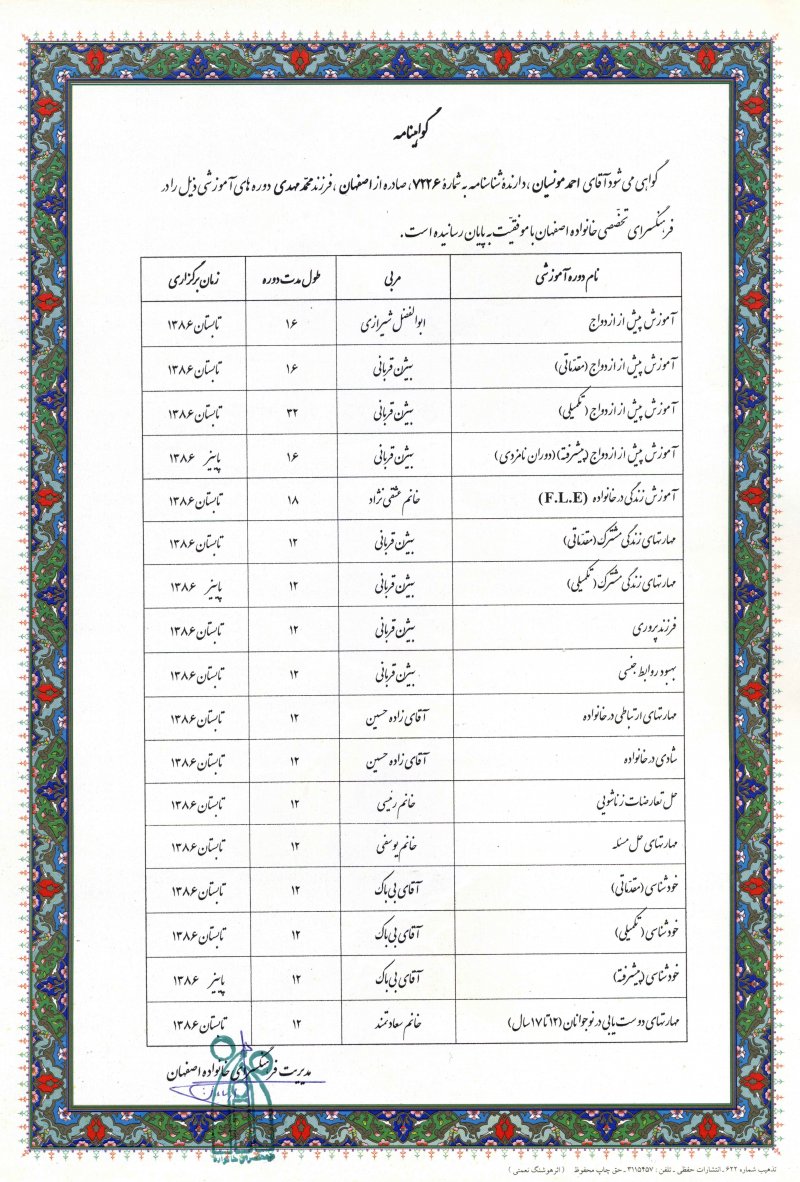 گواهینامه
گواهی می شود آقای احمد مونسیان ، دارندهٔ شناسنامه به شمارهٔ ۷۲۲۶، صادره از اصفهان ، فرزند محمّد مهدی دوره های آموزشی ذیل را در
فرهنگسرای تخصّصی خانواده اصفهان با موفقیّت به پایان رسانیده است .
نام دوره آموزشی مربی طول مدت دوره زمان برگزاری
آموزش پیش از ازدواج ابوالفضل شیرازی ۱۶ تابستان ۱۳۸۶
آموزش پیش از ازدواج (مقدّماتی) بیژن قربانی ۱۶ تابستان ۱۳۸۶
آموزش پیش از ازدواج (تکمیلی) بیژن قربانی ۳۲ تابستان ۱۳۸۶
آموزش پیش از ازدواج (پیشرفته) (دوران نامزدی) بیژن قربانی ۱۶ پاییز ۱۳۸۶
آموزش زندگی در خانواده (F.L.E) خانم عشقی نژاد ۱۸ تابستان ۱۳۸۶
مهارتهای زندگی مشترک (مقدّماتی) بیژن قربانی ۱۲ تابستان ۱۳۸۶
مهارتهای زندگی مشترک (تکمیلی) بیژن قربانی ۱۲ پاییز ۱۳۸۶
فرزند پروری بیژن قربانی ۱۲ تابستان ۱۳۸۶
بهبود روابط جنسی بیژن قربانی ۱۲ تابستان ۱۳۸۶
مهارتهای ارتباطی در خانواده آقای زاده حسین ۱۲ تابستان ۱۳۸۶
شادی در خانواده آقای زاده حسین ۱۲ تابستان ۱۳۸۶
حل تعارضات زناشویی خانم رئیسی ۱۲ تابستان ۱۳۸۶
مهارتهای حل مسئله خانم یوسفی ۱۲ تابستان ۱۳۸۶
خودشناسی (مقدّماتی) آقای بی باک ۱۲ تابستان ۱۳۸۶
خودشناسی (تکمیلی) آقای بی باک ۱۲ تابستان ۱۳۸۶
خودشناسی (پیشرفته) آقای بی باک ۱۲ پاییز ۱۳۸۶
مهارتهای دوست یابی در نوجوانان (۱۲ تا ۱۷ سال) خانم سعادتمند ۱۲ تابستان ۱۳۸۶
مدیریت فرهنگسرای خانواده اصفهان
تذهیب شماره ۶۲۲ ـ انتشارات حفظی ـ تلفن : ۳۱۱۵۴۵۷ ـ حق چاپ محفوظ ( اثر هوشنگ نعمتی )